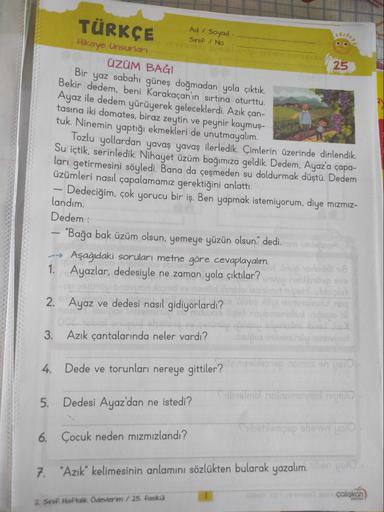 TÜRKÇE
Hikaye Unsurları
Ad / Soyad :
Sınıf / No :
25
ÜZÜM BAĞI
Bir yaz sabahı güneş doğmadan yola çıktık.
Bekir dedem, beni Karakaçan'ın sırtına oturttu.
Ayaz ile dedem yürüyerek geleceklerdi. Azık çan-
tasına iki domates, biraz zeytin ve peynir koymuş-
tuk. Ninemin yaptığı ekmekleri de unutmayalım.
Tozlu yollardan yavaş yavaş ilerledik. Çimlerin üzerinde dinlendik.
Su içtik, serinledik. Nihayet üzüm bağımıza geldik. Dedem, Ayaz'a çapa-
ları getirmesini söyledi. Bana da çeşmeden su doldurmak düştü. Dedem
üzümleri nasıl çapalamamız gerektiğini anlattı.
— Dedeciğim, çok yorucu bir iş. Ben yapmak istemiyorum, diye mızmız-
landım.
Dedem :
— "Bağa bak üzüm olsun, yemeye yüzün olsun." dedi.
Aşağıdaki soruları metne göre cevaplayalım.
1. Ayazlar, dedesiyle ne zaman yola çıktılar?
2. Ayaz ve dedesi nasıl gidiyorlardı?
3. Azık çantalarında neler vardı?
4. Dede ve torunları nereye gittiler?
5. Dedesi Ayaz'dan ne istedi?
6. Çocuk neden mızmızlandı?
7. "Azık" kelimesinin anlamını sözlükten bularak yazalım.
2. Sınıf Haftalık Ödevlerim / 25. Fasikül
1
çalışkan